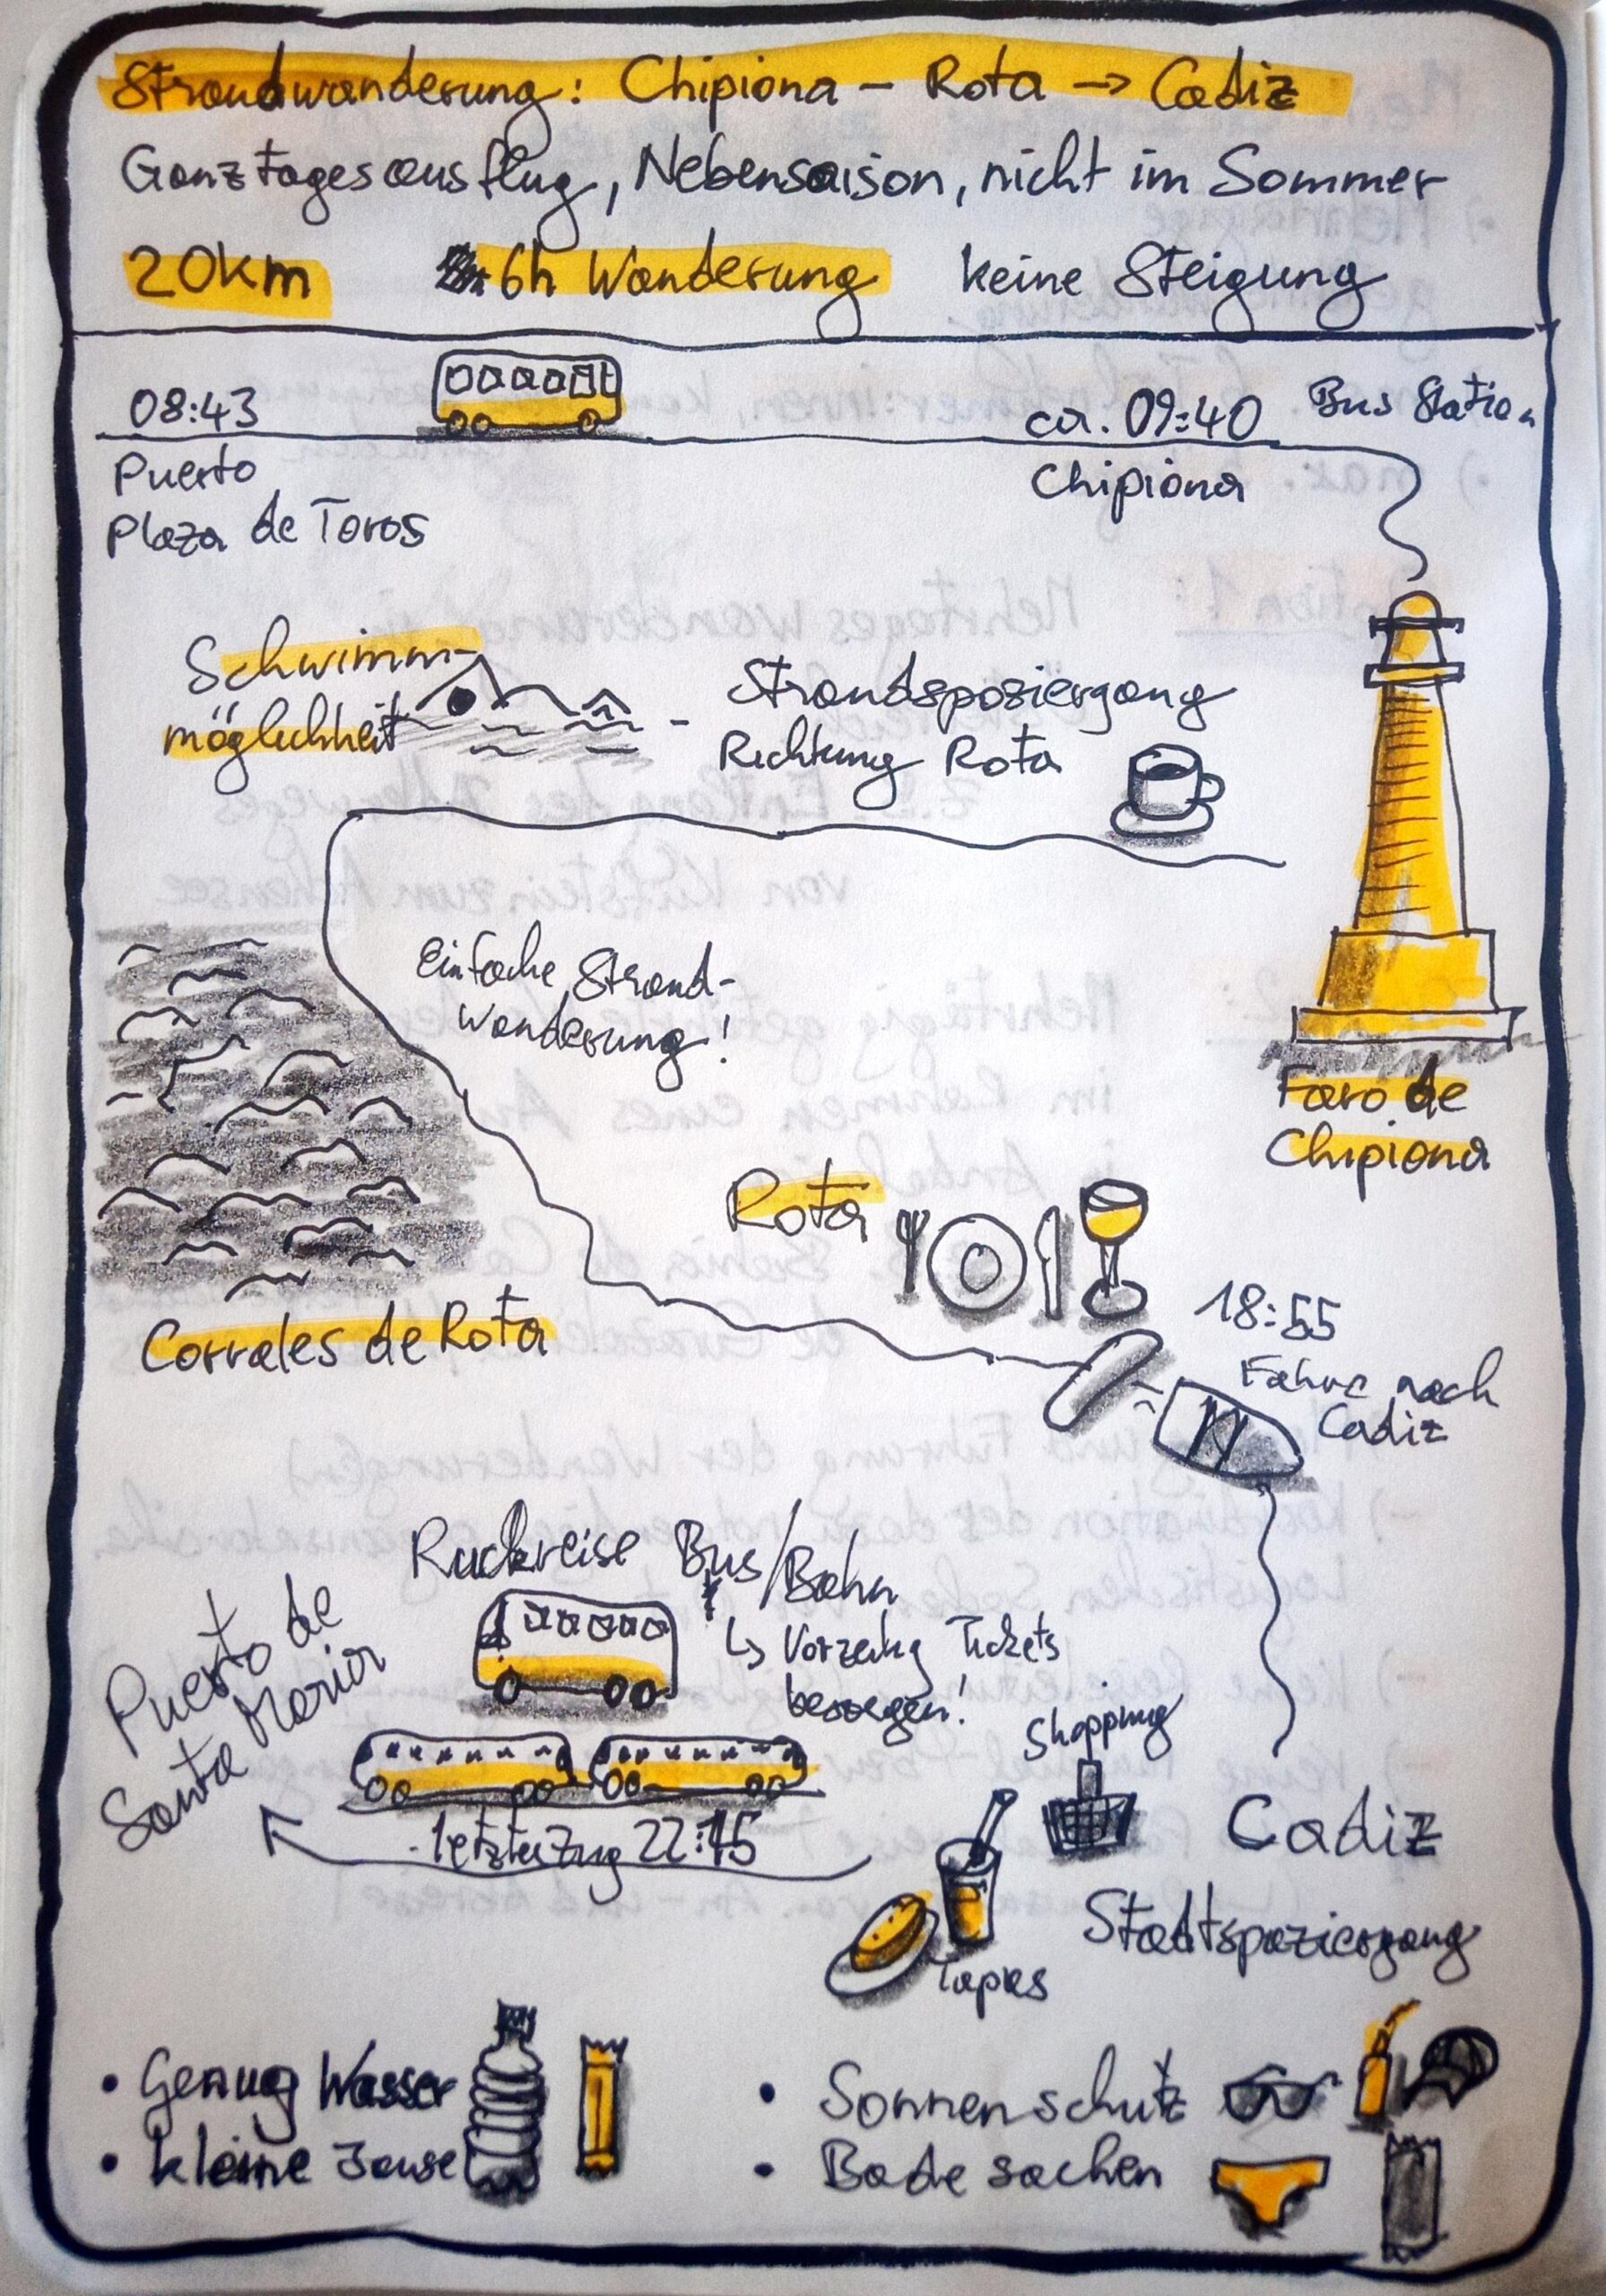 Strandwanderung: Chipiona – Rota → Cadiz
Ganztagesausflug, Nebensaison, nicht im Sommer
20km 6h Wanderung keine Steigung
08:43
ca. 09:40 Bus Station
Puerto
Plaza de Toros
Chipiona
Schwimm-
möglichkeit
Strandspaziergang
Richtung Rota
Einfache Strand-
Wanderung!
Faro de
Chipiona
Rota
Corrales de Rota
18:55
Fähre nach
Cadiz
Rückreise Bus/Bahn
↳ Vorzeitig Tickets
besorgen!
Puerto de
Santa Maria
letzter Zug 22:15
Shopping
Cadiz
Stadtspaziergang
Tapas
• Genug Wasser
• kleine Jause
• Sonnenschutz
• Badesachen